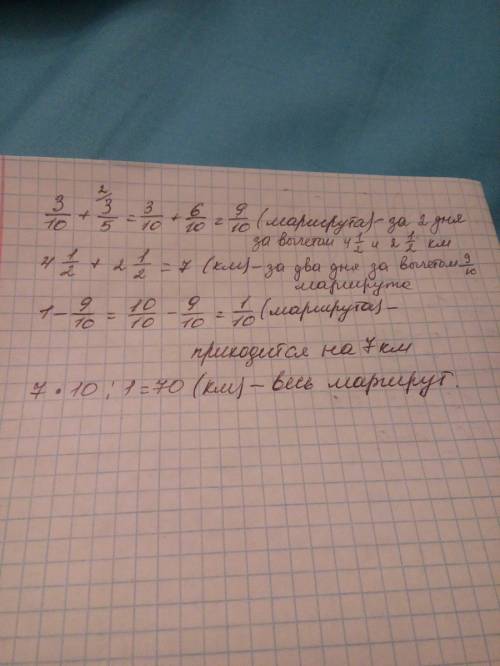 3/10 + 3/5 (2/) = 3/10 + 6/10 = 9/10 (маршрута) - за 2 дня
за вычетом 4 1/2 и 2 1/2 км
4 1/2 + 2 1/2 = 7 (км) - за два дня за вычетом 9/10
маршрута
1 - 9/10 = 10/10 - 9/10 = 1/10 (маршрута) -
приходится на 7 км
7 · 10 : 1 = 70 (км) - весь маршрут.